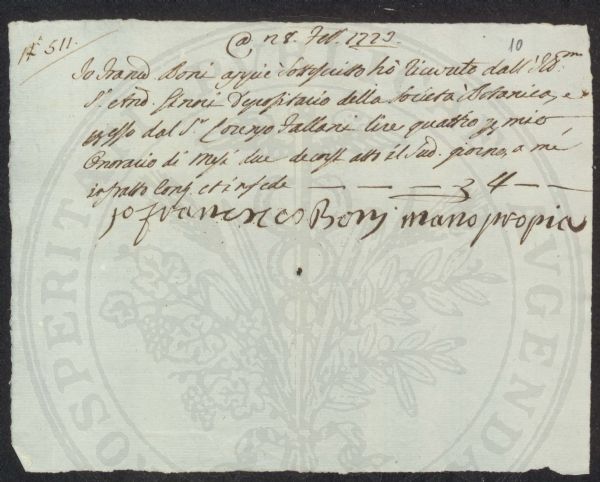 N° 511.
@ n 8. Feb. 1723.
10
Io Franco Boni appiè sottoscritto hò ricevuto dall' Ill.mo
S.r And. Ginori Depositario della Società Botanica, e p
esso dal S.r Lorenzo Fallani lire quattro p mio
Onorario di mesi due decorsi atto il sud. giorno, a me
io fatto cont. et in fede — — — — 3 4 — —
Io francesco Boni mano propia
PROSPERITATI AVGENDAE